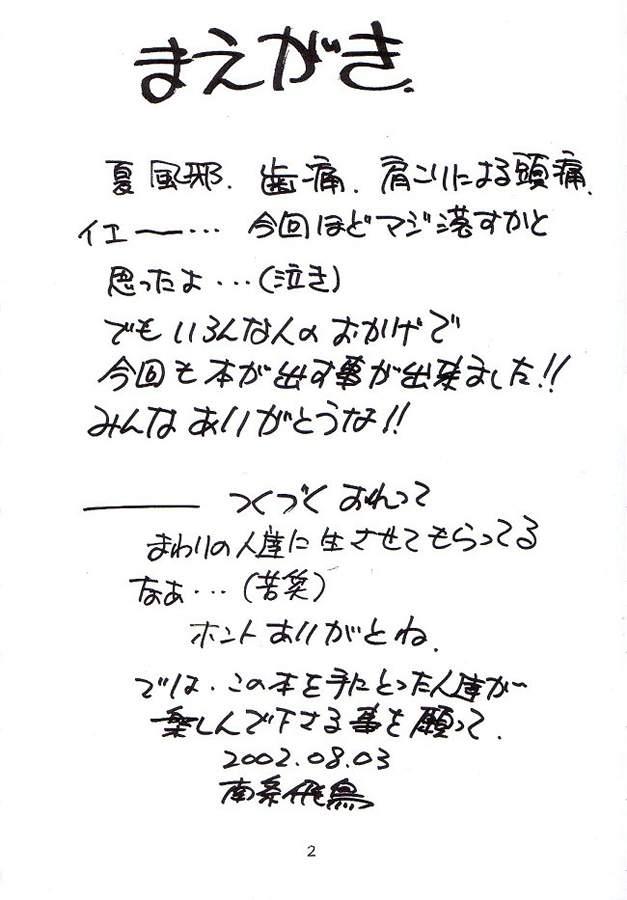 まえがき.
夏風邪、歯痛、肩こりによる頭痛、
イエー──・・・今回ほどマジ落すかと
思ったよ・・・(泣き)
でもいろんな人のおかげで
今回も本が出す事が出来ました!!
みんなありがとうな!!
────つくづくおれって
まわりの人達に生させてもらってる
なぁ・・・(苦笑)
ホントありがとね、
では、この本を手にとった人達が
楽しんで下さる事を願って、
2002.08.03
南条飛鳥
2